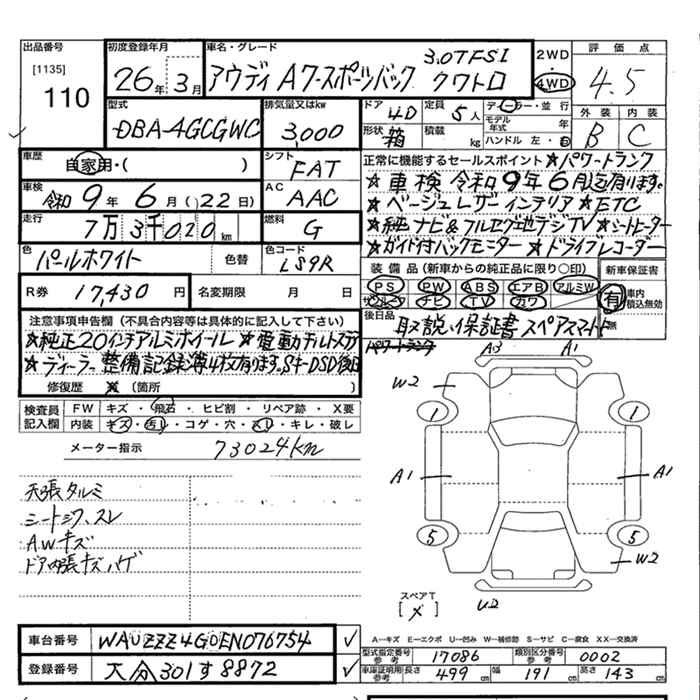 出品番号
[1135]
110
初度登録年月
26年3月
車名・グレード
アウディ A7スポーツバック 3.0TFSI クワトロ
2WD
4WD
評価点
4.5
外装 内装
B C
型式
DBA-4GCGWC
排気量又はkw
3,000
ドア 4D
定員 5人
形状 箱
積載 kg
ディーラー・並行
モデル年式 年
ハンドル 左・右
車歴
自家用・( )
シフト
FAT
車検
令和9年6月(22日)
AC
AAC
走行
7万3千020km
燃料
G
色
パールホワイト
色替
色コード
LS9R
R券 17,430円
名変期限 月 日
正常に機能するセールスポイント ★パワートランク
★車検令和9年6月迄有ります。
★ベージュレザーインテリア ★ETC
★純ナビ&フルセグ地デジTV ★シートヒーター
★ガイド付バックモニター ★ドライブレコーダー
装備品(新車からの純正品に限り○印)
PS PW ABS エアB アルミW
サンルーフ ナビ TV カワ
新車保証書
有 車内積込無効
無
後日品
取説い保証書 スペアスマート
注意事項申告欄(不具合内容等は具体的に記入して下さい)
★純正20インチアルミホイール ★電動チルトステア
★ディーラー整備記録簿4枚有ります。
修復歴 (箇所 )
検査員記入欄
FW キズ・飛石・ヒビ割・リペア跡・X要
内装 キズ・汚れ・コゲ・穴・スレ・キレ・破レ
メーター指示 73024km
天張タルミ
シートシワ、スレ
AWキズ
ドア内張キズハゲ
A3 A1
W2
1 1
A1 A1
5 5
W2
U2
スペアT
[メ]
A―キズ E―エクボ U―凹み W―補修跡 S―サビ C―腐食 XX―交換済
車台番号 WAUZZZ4G0EN076754
登録番号 大分301す8872
型式指定番号 参考 17086
類別区分番号 参考 0002
車庫証明用 参考 長さ 499cm 幅 191cm 高さ 143cm